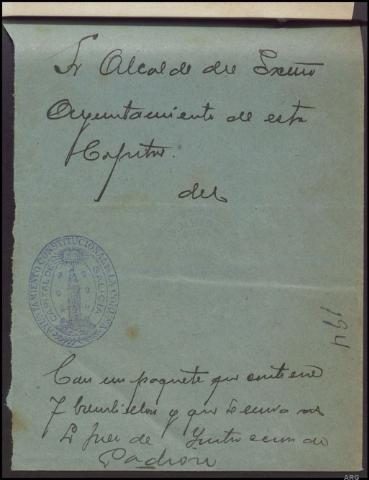 Sr Alcalde del Excmo
Ayuntamiento de esta
Capital.
del
AYUNTAMIENTO CONSTITUCIONAL DE LA CORUÑA
CAPITAL DE GALICIA
194
Con un paquete que contiene
7 y que
Sr Juez de Instruccion de
Padron
ARG